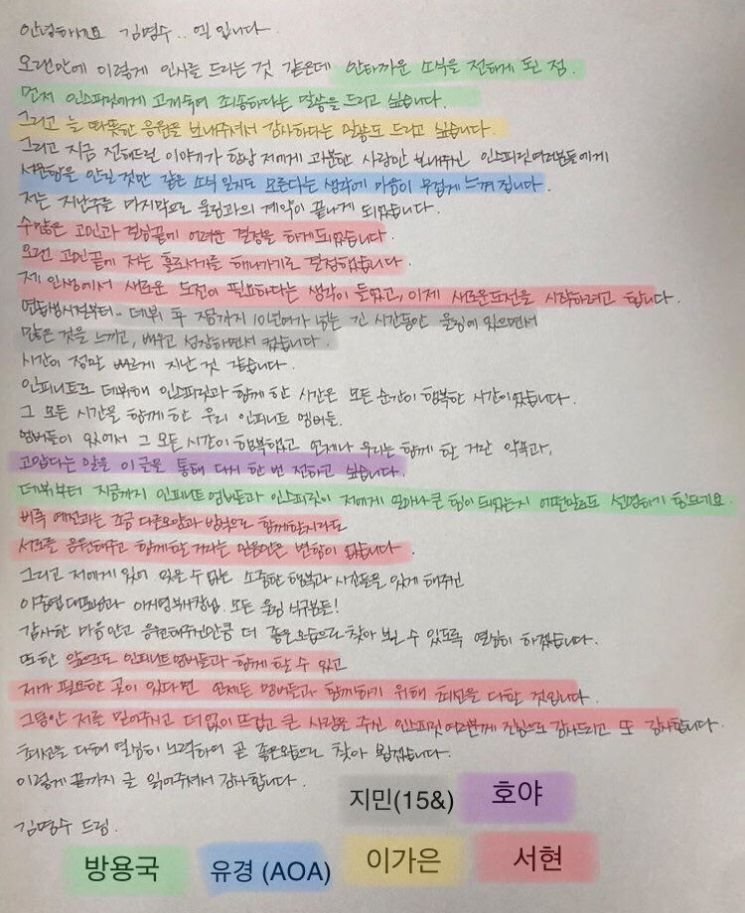 안녕하세요 김명수.. 엘 입니다.
오랜만에 이렇게 인사를 드리는 것 같은데 안타까운 소식을 전하게 된 점.
먼저 인스피릿에게 고개숙여 죄송하다는 말씀을 드리고 싶습니다.
그리고 늘 따뜻한 응원을 보내주셔서 감사하다는 말씀도 드리고 싶습니다.
그리고 지금 전해드릴 이야기가 항상 저에게 과분한 사랑만 보내주신 인스피릿 여러분들에게
서운함을 안길 것만 같은 소식 일지도 모른다는 생각에 마음이 무겁게 느껴집니다.
저는 지난주를 마지막으로 울림과의 계약이 끝나게 되었습니다.
수많은 고민과 걱정끝에 어려운 결정을 하게되었습니다.
오랜 고민끝에 저는 홀로서기를 해나가기로 결정했습니다.
제 인생에서 새로운 도전이 필요하다는 생각이 들었고, 이제 새로운도전을 시작하려고 합니다.
연습생시절부터.. 데뷔 후 지금까지 10년여가 넘는 긴 시간동안 울림에 있으면서
많은 것을 느끼고, 배우고 성장하면서 컸습니다.
시간이 정말 빠르게 지난 것 같습니다.
인피니트로 데뷔해 인스피릿과 함께 한 시간은 모든 순간이 행복한 시간이었습니다.
그 모든 시간을 함께 한 우리 인피니트 멤버들.
멤버들이 있어서 그 모든 시간이 행복했고 언제나 우리는 함께 할 거란 약속과,
고맙다는 말을 이 글을 통해 다시 한 번 전하고 싶습니다.
데뷔부터 지금까지 인피니트 멤버들과 인스피릿이 저에게 얼마나 큰 힘이 되었는지 어떤말로도 설명하기 힘드네요.
비록 예전과는 조금 다른모양과 방식으로 함께할지라도
서로를 응원해주고 함께할 거라는 믿음만은 변함이 없습니다.
그리고 저에게 있어 잊을 수 없는 소중한 행복과 시간들을 있게 해주신
이중엽대표님과 이지영부사장님. 모든 울림 식구분들!
감사한 마음안고 응원해주신만큼 더 좋은모습으로 찾아 뵐 수 있도록 열심히 하겠습니다.
또한 앞으로도 인피니트멤버들과 함께 할 수 있고
제가 필요한 곳이 있다면 언제든 멤버들과 함께하기 위해 최선을 다할 것입니다.
그동안 저를 믿어주시고 더없이 뜨겁고 큰 사랑을 주신 인스피릿 여러분께 진심으로 감사드리고 또 감사합니다.
최선을 다해 열심히 노력하여 곧 좋은모습으로 찾아 뵙겠습니다.
이렇게 끝까지 글 읽어주셔서 감사합니다.
김명수 드림.
지민(15&) 호야
방용국 유경 (AOA) 이가은 서현